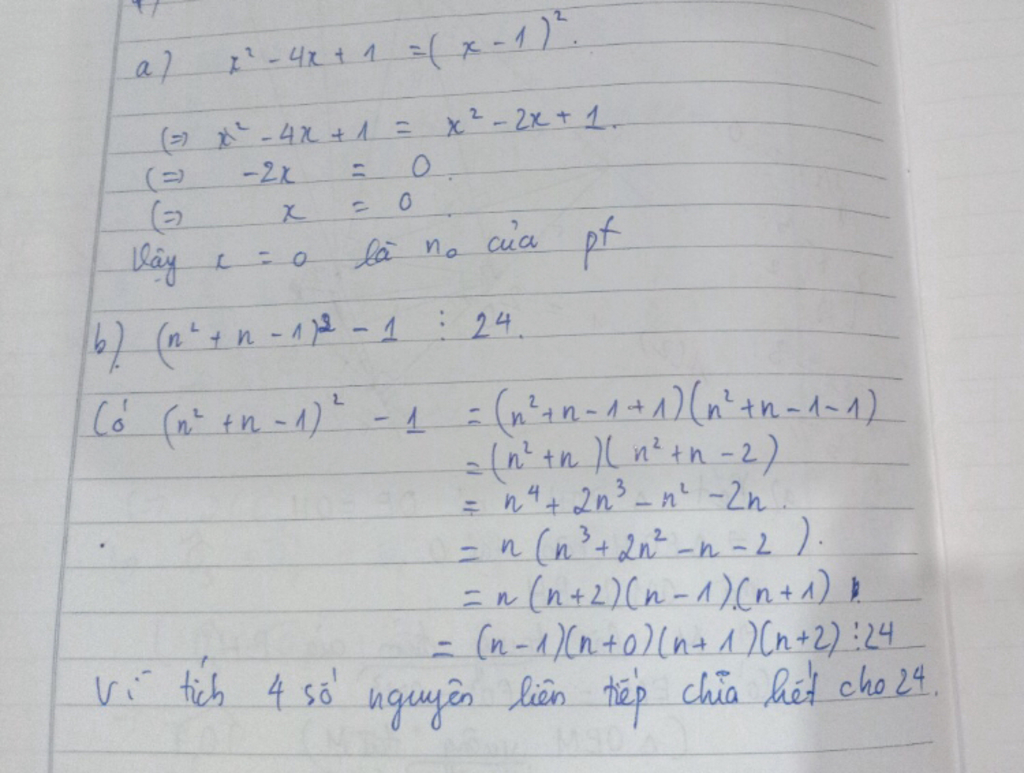 a) x² - 4x + 1 = (x - 1)².
(=) x² - 4x + 1 = x² - 2x + 1.
(=) -2x = 0.
(=) x = 0.
Vậy x = 0 là n₀ của pt
b) (n² + n - 1)² - 1 ⋮ 24.
Có (n² + n - 1)² - 1 = (n² + n - 1 + 1)(n² + n - 1 - 1)
= (n² + n)(n² + n - 2)
= n⁴ + 2n³ - n² - 2n.
= n(n³ + 2n² - n - 2).
= n(n+2)(n-1).(n+1)
= (n-1)(n+0)(n+1)(n+2) ⋮ 24
Vì tích 4 số nguyên liên tiếp chia hết cho 24.